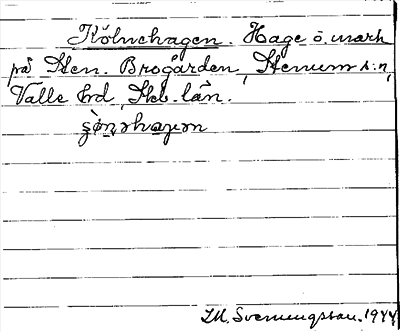 Kölnehagen. Hage o. mark
på Sten. Brogården, Stenum s:n,
Valle hd, Skb. län.
I.M. Svenungsson. 1944